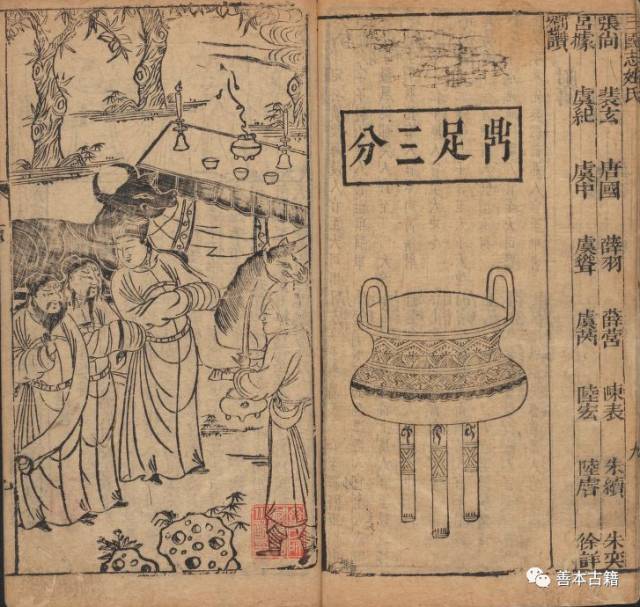 三國志姓氏
九
張尚 裴玄 唐國 薛羽 薛營 陳表 朱續 朱奕
呂據 虞紀 虞聳 虞 陸宏 陸 徐詳
讚
鼎足三分
善本古籍